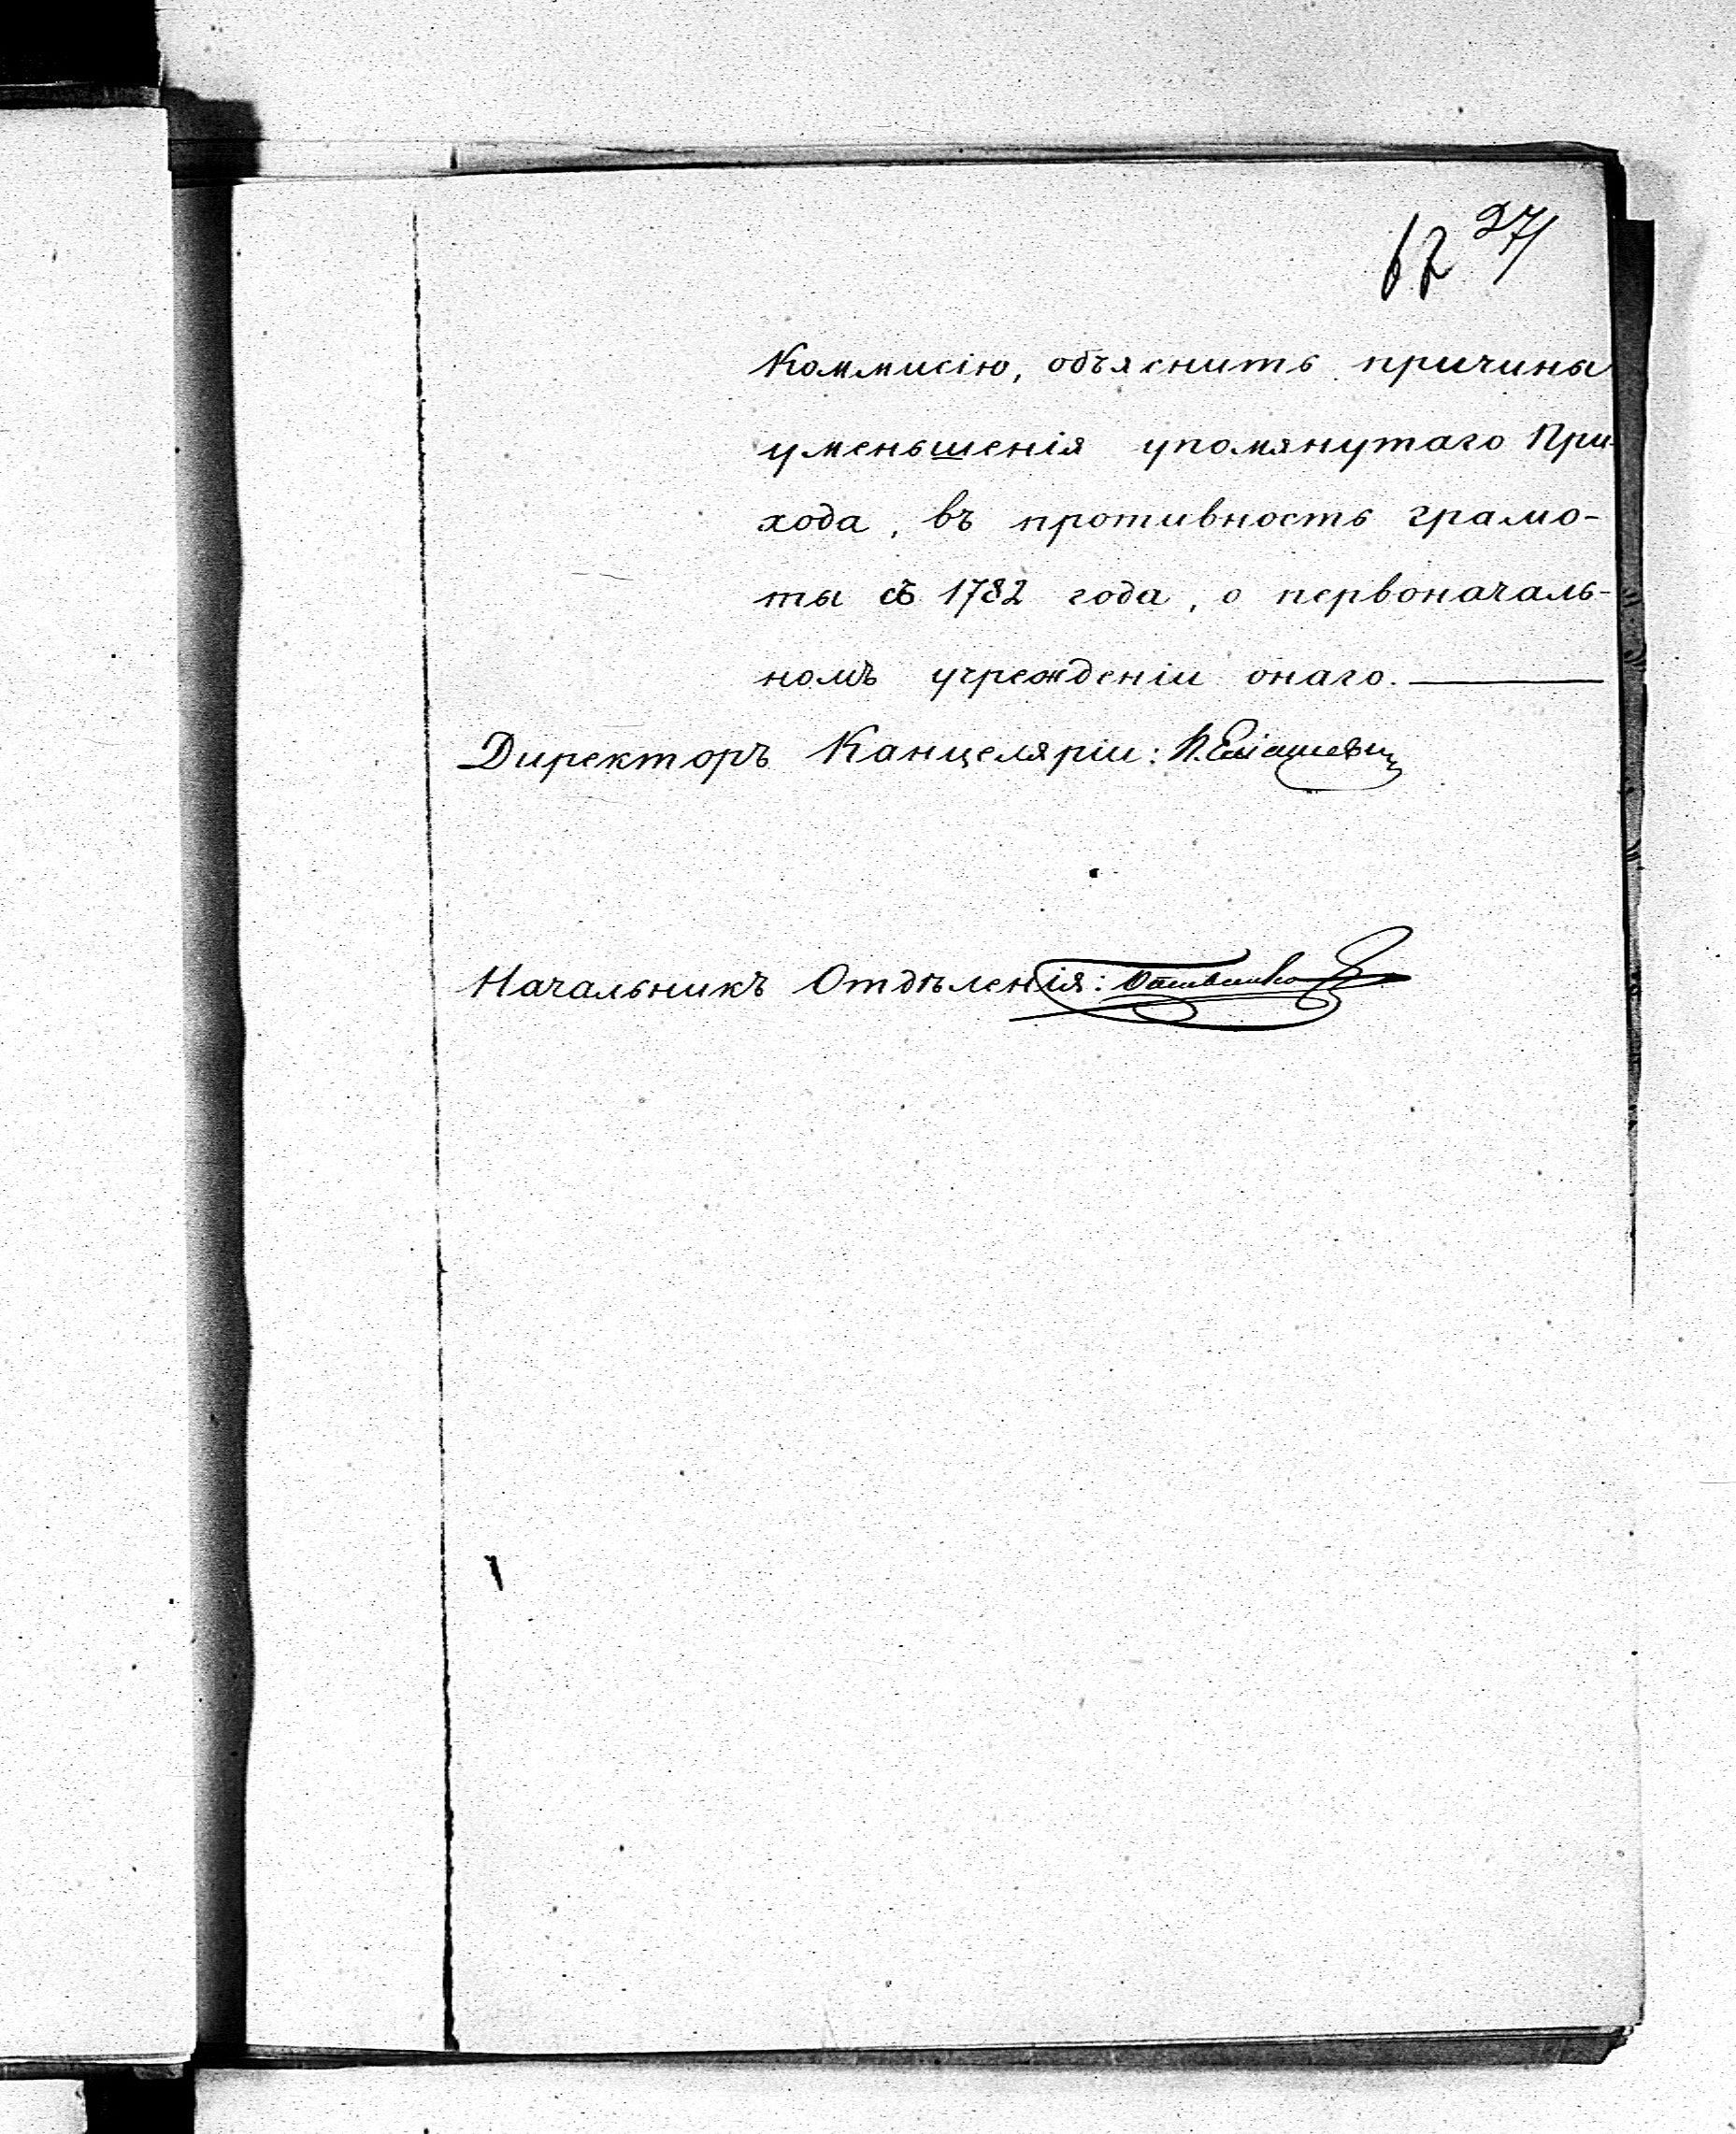 62 27
Коммисію, объяснить причины
уменьшенія упомянутаго При-
хода, въ противность грамо-
ты съ 1782 года, о первоначаль-
номъ учрежденіи онаго.
Директоръ Канцеляріи:
Начальникъ Отдѣленія: